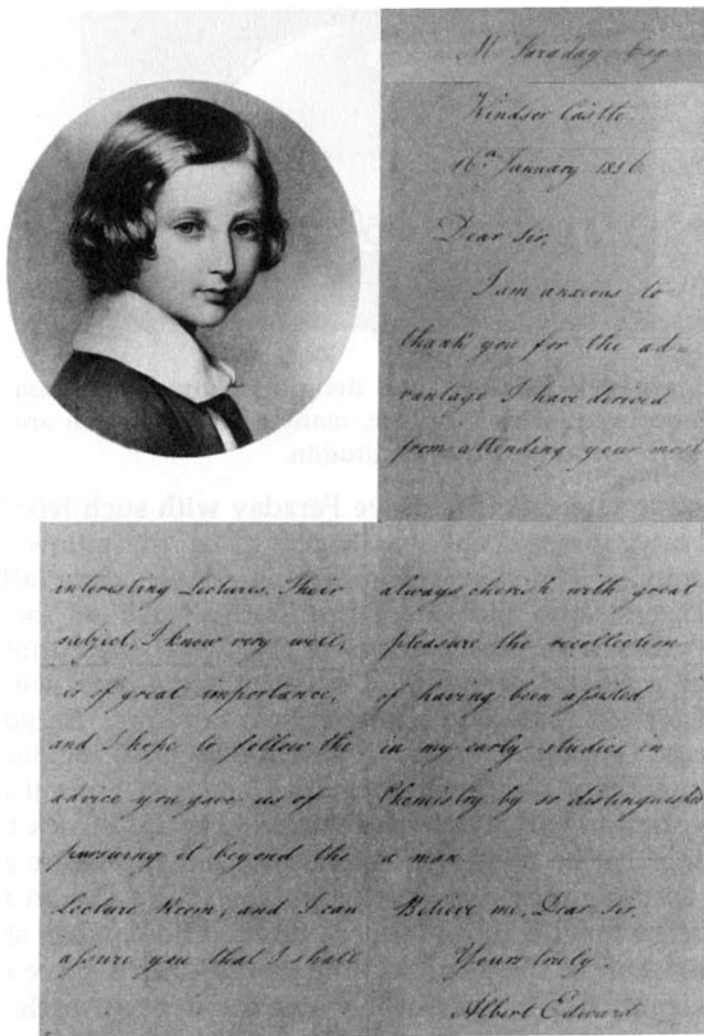 M. Faraday Esq
Windsor Castle.
16th January 1856.
Dear Sir,
I am anxious to
thank you for the ad=
vantage I have derived
from attending your most
interesting Lectures. Their
subject, I know very well,
is of great importance,
and I hope to follow the
advice you gave us of
pursuing it beyond the
Lecture Room, and I can
assure you that I shall
always cherish with great
pleasure the recollection
of having been assisted
in my early studies in
Chemistry by so distinguished
a man
Believe me, Dear Sir,
Yours truly.
Albert Edward